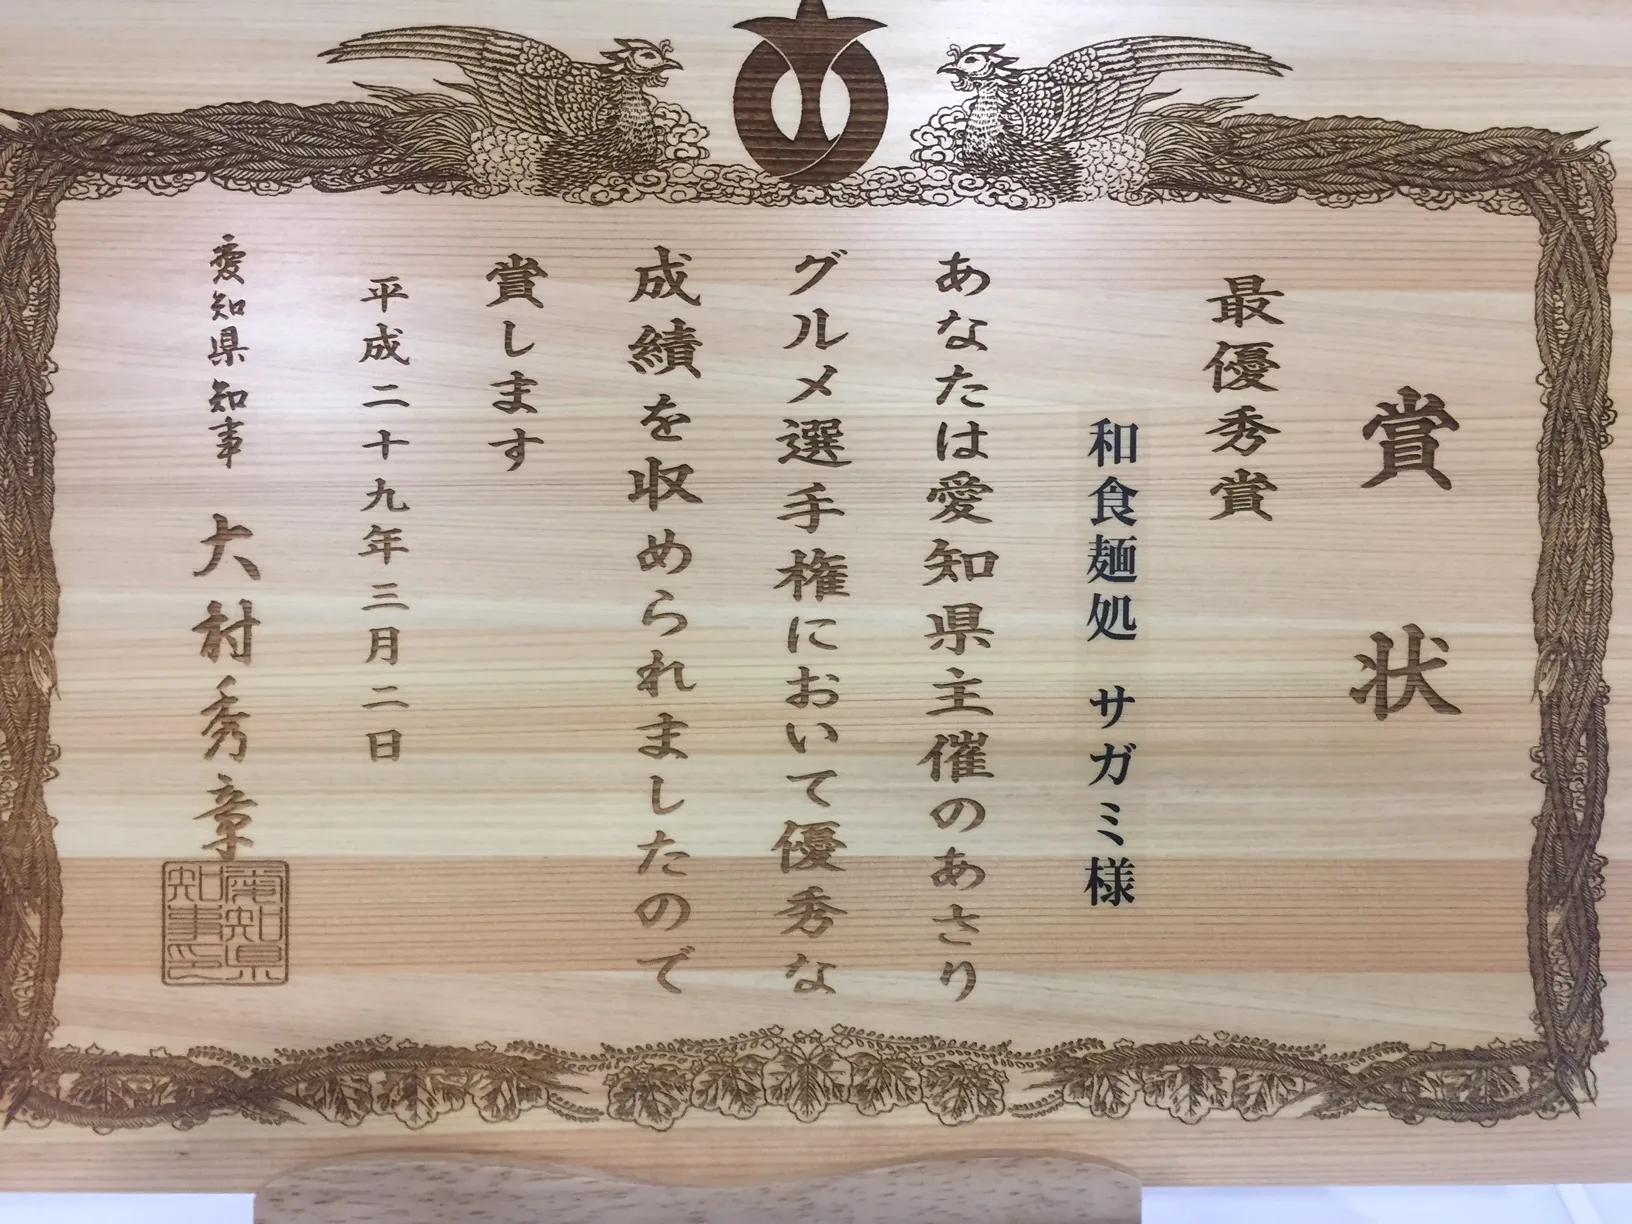 賞状
最優秀賞
和食麺処 サガミ様
あなたは愛知県主催のあさり
グルメ選手権において優秀な
成績を収められましたので
賞します
平成二十九年三月二日
愛知県知事 大村秀章
愛知県
知事印